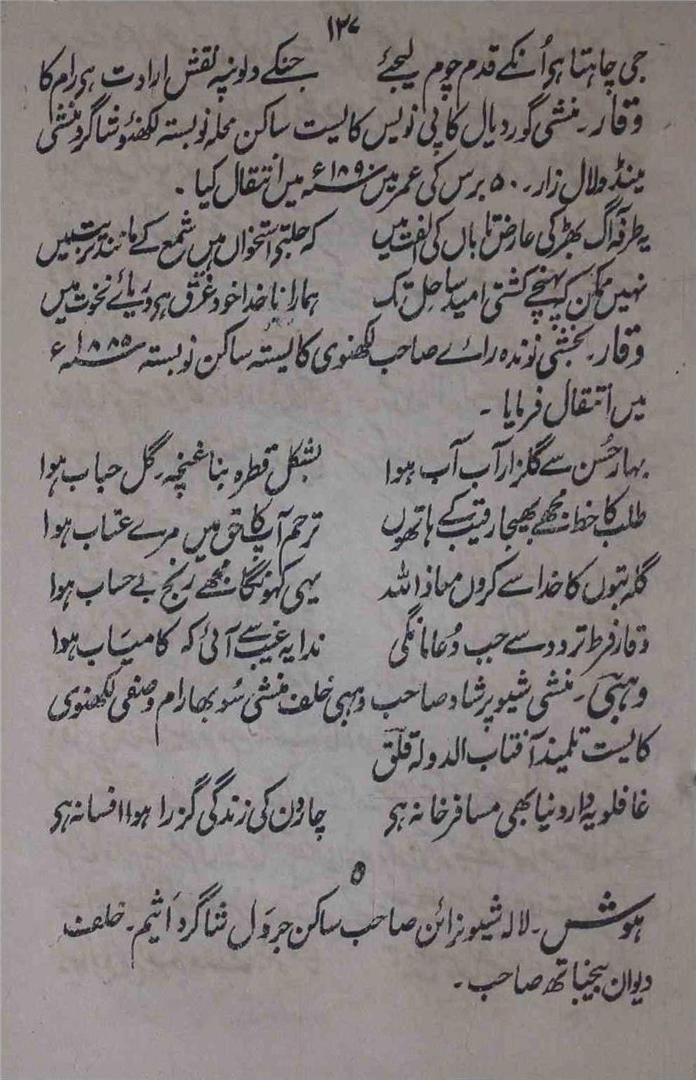 ۱۲۷
جی چاہتا ہی اُنکے قدم چوم لیجئے جنکے دلونپہ نقش ارادت ہی رام کا
وقار۔ منشی گوردیال کاپی نویس کایست ساکن محلہ نوبستہ لکھنؤ شاگرد منشی
مینڈولال زار۔ ۵۰ برس کی عمر میں ۱۸۹۰ء میں انتقال کیا۔
یہ طرفہ آگ بھڑکی عارض تاباں کی الفت میں کہ جلتی استخواں ہیں شمع کے مانند تربت میں
نہیں ممکن کہ پہنچے کشتی امید ساحل تک ہمارا ناخدا خود غرق ہی دریائے نخوت میں
وقار۔ بخشی نوندہ رائے صاحب لکھنوی کایستہ ساکن نوبستہ ۱۸۸۵ء
میں انتقال فرمایا۔
بہار حُسن سے گلزار آب آب ہوا بشکل قطرہ بنا غنچہ۔ گل حباب ہوا
طلب کا خط مجھے بھیجا رقیب کے ہاتھوں ترحم آپ کا حق میں مرے عتاب ہوا
گلہ بتوں کا خدا سے کروں معاذ اللہ یہی کہونگا مجھے رنج بے حساب ہوا
وقار فرط تردد سے جب دُعا مانگی ندا یہ غیب سے آئی کہ کامیاب ہوا
وہبی۔ منشی شیو پرشاد صاحب وہبی خلف منشی سُوبھا رام وصفی لکھنوی
کایست تلمیذ آفتاب الدولہ قلق
غافلو یہ دار دنیا بھی مسافر خانہ ہی چار دن کی زندگی گزرا ہوا افسانہ ہی
ہ
ہوش۔ لالہ شیو نرائن صاحب ساکن جرول شاگرد اثیم۔ خلف
دیوان بیجناتھ صاحب۔